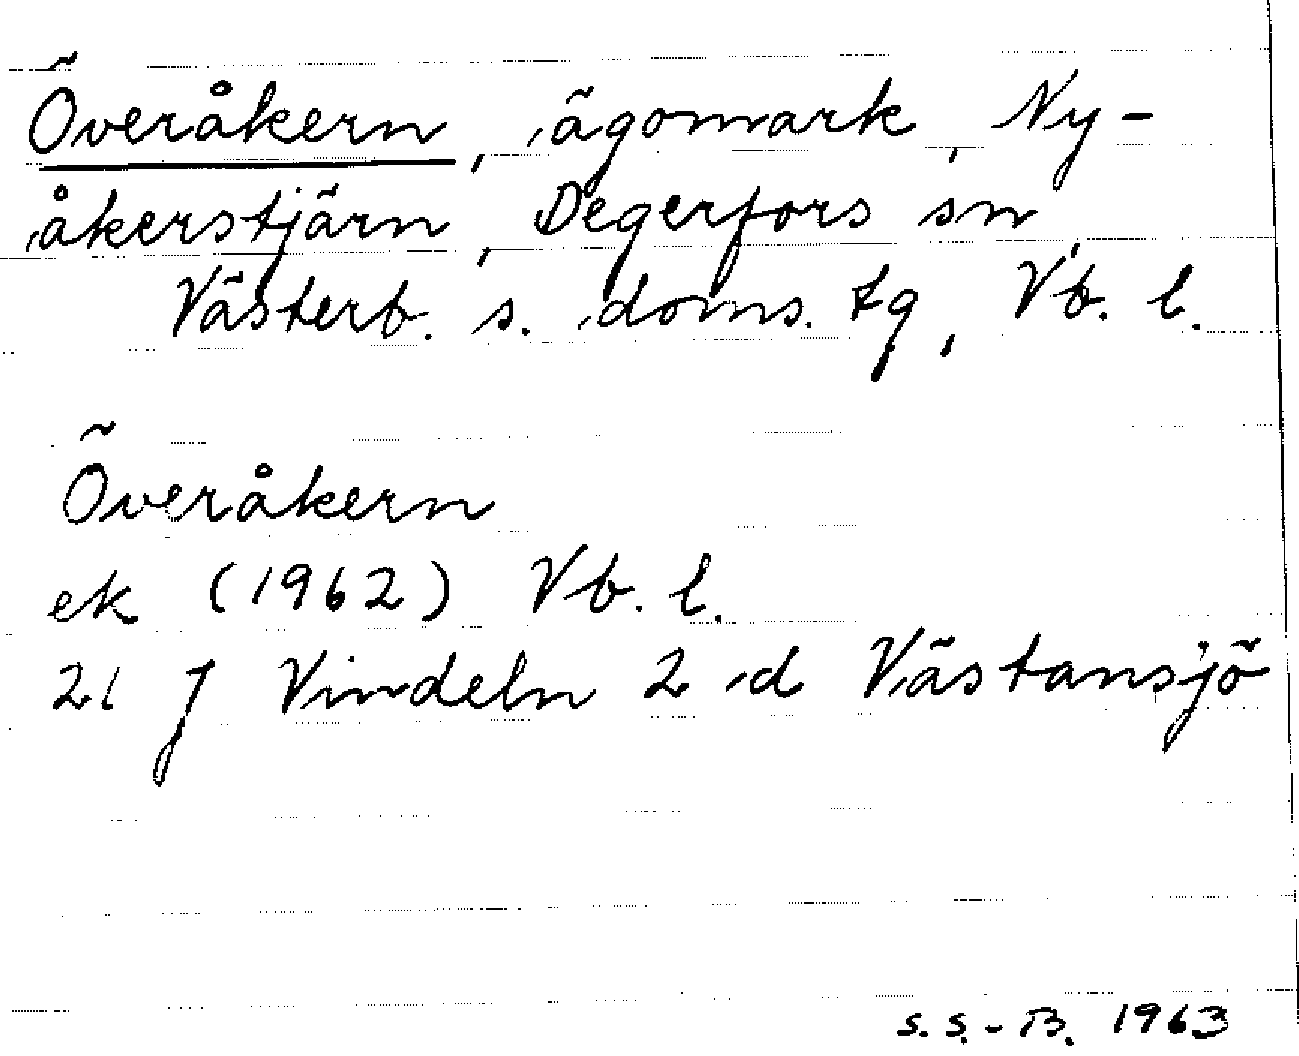 Överåkern, ägomark, Ny-
åkerstjärn, Degerfors sn,
Västerb. s. doms. tg, Vb. l.
Överåkern
ek (1962) Vb. l.
21 J Vindeln 2 d Västansjö
S. S.-B. 1963